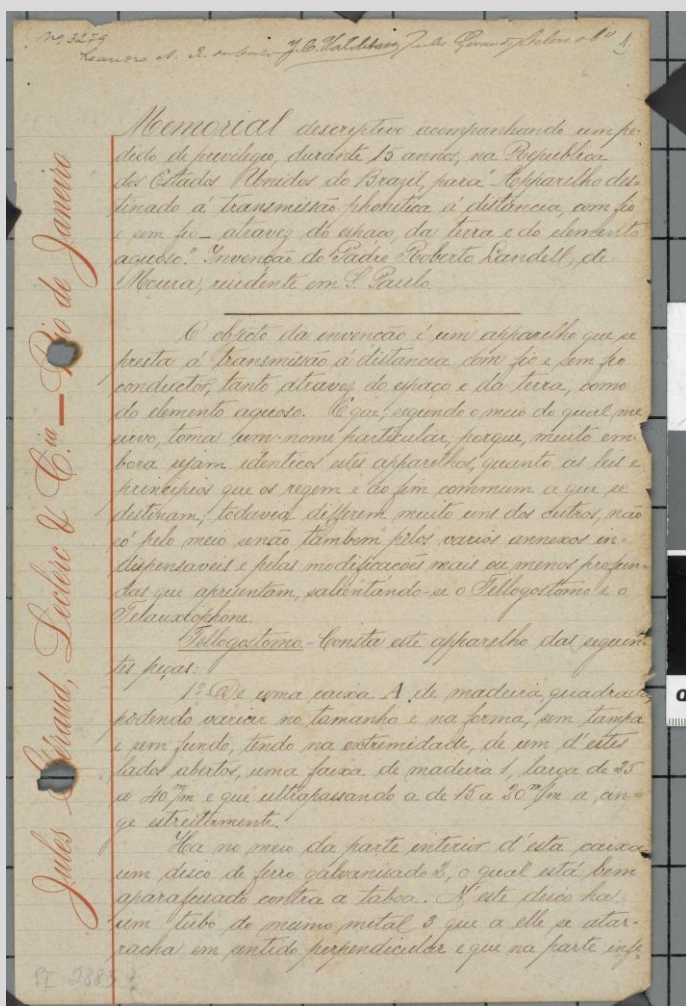 Nº 3279
J. C. Valdetaro Jules Geraud, Leclerc & Cia 1
Jules Géraud, Leclerc & C.ia — Rio de Janeiro
Memorial descriptivo acompanhando um pe-
dido de privilegio, durante 15 annos, na Republica
dos Estados Unidos do Brazil, para "Apparelho des-
tinado á transmissão phonetica á distancia, com fio
e sem fio – atravez do espaço, da terra e do elemento
aquoso." Invenção do Padre Roberto Landell, de
Moura, residente em S. Paulo
O objecto da invenção é um apparelho que se
presta á transmissão á distancia com fio e sem fio
conductor, tanto atravez do espaço e da terra, como
do elemento aquoso. E que, segundo o meio do qual me
sirvo, toma um nome particular, porque, muito em-
bora sejam identicos estes apparelhos, quanto as leis e
principios que os regem e ao fim commum a que se
destinam; todavia differem muito uns dos outros, não
só pelo meio senão tambem pelos varios annexos in-
dispensaveis e pelas modificacões mais ou menos profun-
das que apresentam, salientando-se o Tellogostomo e o
Telauxiophone.
Tellogostomo – Consta este apparelho das seguin-
tes peças:
1º De uma caixa A de madeira quadrada,
podendo variar no tamanho e na forma, sem tampa
e sem fundo, tendo na extremidade, de um d'estes
lados abertos, uma faixa de madeira 1, larga de 35
a 40 m/m e que ultrapassando a de 15 a 20 m/m a cin-
ge estreitamente.
Ha no meio da parte interior d'esta caixa
um disco de ferro galvanisado 2, o qual está bem
aparafusado contra a taboa. N'este disco ha
um tubo do mesmo metal 3 que a elle se atar-
racha em sentido perpendicular e que na parte infe-
PI 2883